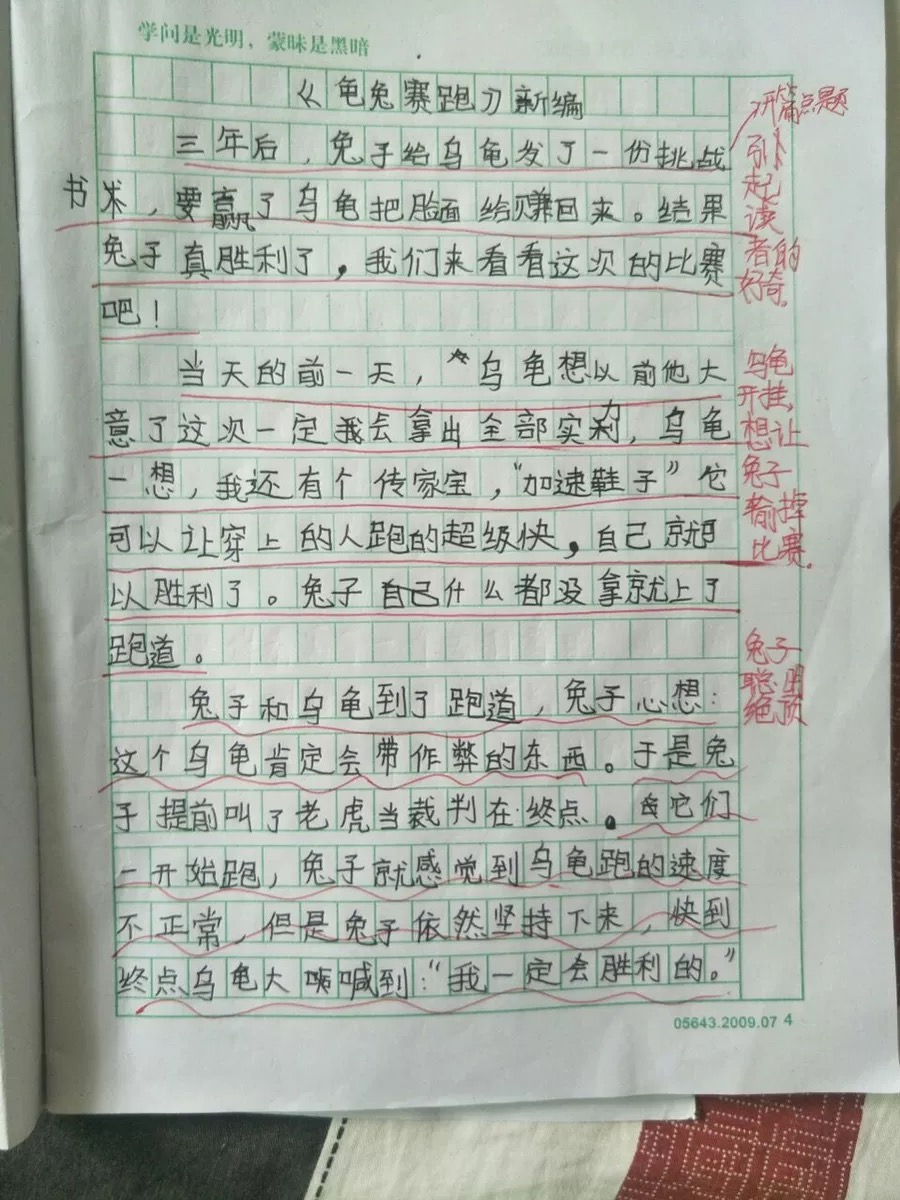 学问是光明，蒙昧是黑暗
《龟兔赛跑》新编
三年后，兔子给乌龟发了一份挑战
书术，要赢了乌龟把脸面给赚回来。结果
兔子真胜利了，我们来看看这次的比赛
吧！
当天的前一天，乌龟想以前他大
意了这次一定我会拿出全部实力，乌龟
一想，我还有个传家宝，“加速鞋子”它
可以让穿上的人跑的超级快，自己就可
以胜利了。兔子自己什么都没拿就上了
跑道。
兔子和乌龟到了跑道，兔子心想：
这个乌龟肯定会带作弊的东西。于是兔
子提前叫了老虎当裁判在终点。它们
一开始跑，兔子就感觉到乌龟跑的速度
不正常，但是兔子依然坚持下来，快到
终点乌龟大喊到：“我一定会胜利的。”
开篇点题
引
起
读
者的
好奇。
乌龟
开挂，
想让
兔子
输掉
比赛。
兔子
聪明
绝顶
05643.2009.07 4